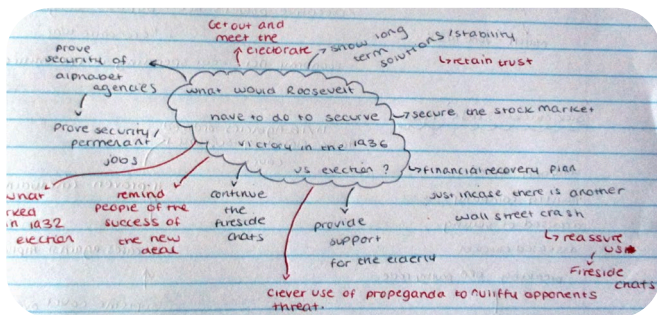 Get out and
meet the
electorate
show long
term
solutions/stability
↳retain trust
prove
security of
alphabet
agencies
Prove security/
permenant
jobs
what would Roosevelt
have to do to secure
victory in the 1936
us election?
secure the stock market
financial recovery plan
just incase there is another
wall street crash
↳reassure
us
Fireside
chats
what
in 1932
election
remind
people of the
success of
the new
deal
continue
the
fireside
chats
provide
support
for the elderly
clever use of propeganda to nullify opponents
threat.